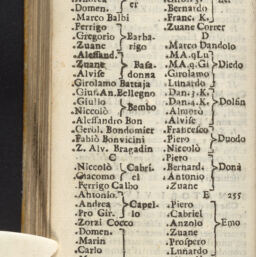 .Domen. er
.Marco Balbi
.Ferrigo
.Gregorio Barba-
.Zuane rigo
.Alessand.
.Zuane Basa
.Alvise donna
.Girolamo Battaja
.Giuf.An.Bellegno
.Giulio
.Niccolò Bembo
.Alessandro Bon
.Gerol. Bondomier
.Fabiò Bonvicini
.Z. Alv. Bragadin
C
.Niccolò Cabri.
.Giacomo el
.Ferrigo Calbo
.Antonio.
.Andrea Capel-
.Pro Gir. lo
.Zorzi Cocco
.Domen.
.Marin
.Carlo
.Bernardo
.Franc. K.
.Zuane Correr
D
.Marco Dandolo
.MA.qLu
.MA.q.Gi Diedo
.Girolamo
.Lunardo
.Dan.3.K.
.Dan.4.K. Dolfin
.Almorò
.Alvise
.Francesco
.Piero Duodo
.Niccolò
.Piero
.Bernard Donà
.Antonio
.Zuane
E 255
.Piero
.Cabriel
.Anzolo Emo
.Zuane
.Prospero
.Lunardo